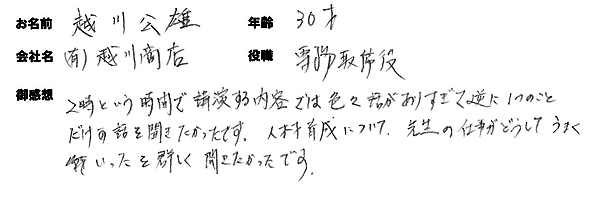 お名前 越川公雄 年齢 30才
会社名 (有)越川商店 役職 専務取締役
御感想
2時という時間で講演する内容では色々話がありすぎて逆に1つのこと
だけの話を聞きたかったです。人材育成について、先生の仕事がどうしてうまく
いったを詳しく聞きたかったです。